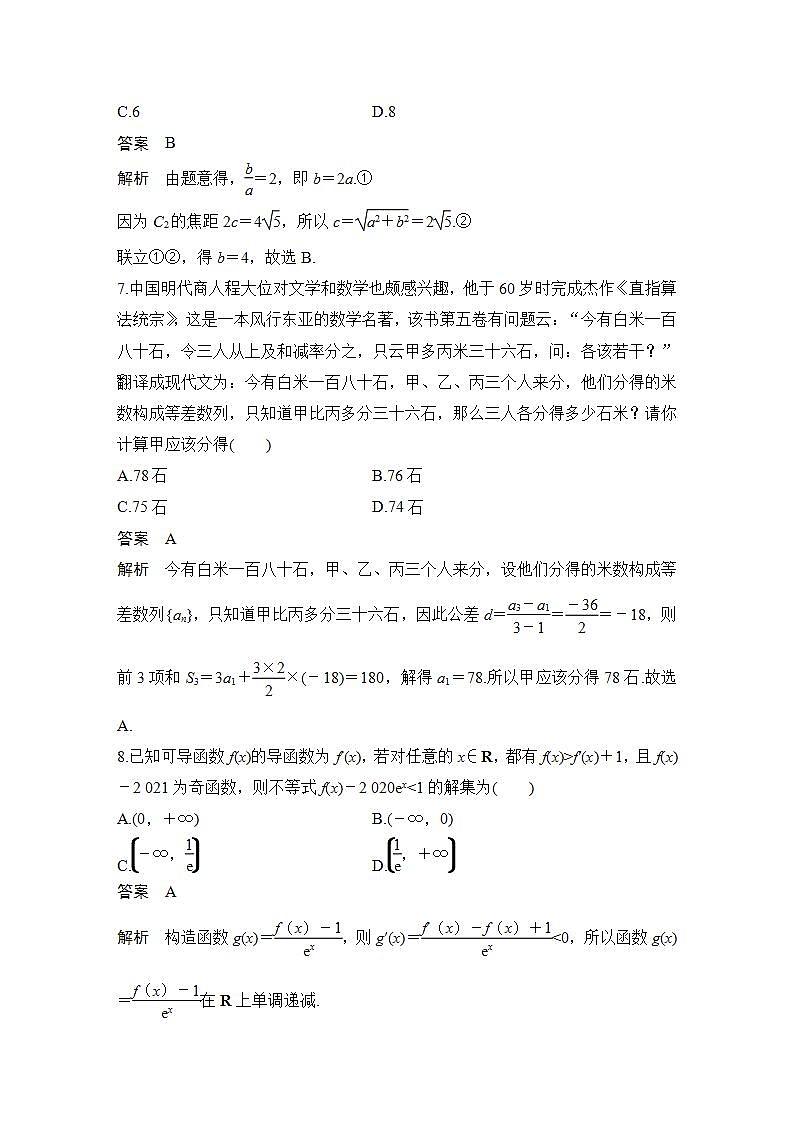 C.6 D.8
答案 B
解析 由题意得，b/a＝2，即 b＝2a.①
因为 C₂的焦距 2c＝4√5，所以 c＝√(a²＋b²)＝2√5.②
联立①②，得 b＝4，故选 B.
7.中国明代商人程大位对文学和数学也颇感兴趣，他于 60 岁时完成杰作《直指算
法统宗》，这是一本风行东亚的数学名著，该书第五卷有问题云：“今有白米一百
八十石，令三人从上及和减率分之，只云甲多丙米三十六石，问：各该若干？”
翻译成现代文为：今有白米一百八十石，甲、乙、丙三个人来分，他们分得的米
数构成等差数列，只知道甲比丙多分三十六石，那么三人各分得多少石米？请你
计算甲应该分得( )
A.78石 B.76石
C.75石 D.74石
答案 A
解析 今有白米一百八十石，甲、乙、丙三个人来分，设他们分得的米数构成等
差数列{aₙ}，只知道甲比丙多分三十六石，因此公差 d＝(a₃－a₁)/(3－1)＝－36/2＝－18，则
前 3 项和 S₃＝3a₁＋(3×2)/2×(－18)＝180，解得 a₁＝78.所以甲应该分得 78 石.故选
A.
8.已知可导函数 f(x)的导函数为 f′(x)，若对任意的 x∈R，都有 f(x)>f′(x)＋1，且 f(x)
－2 021 为奇函数，则不等式 f(x)－2 020eˣ<1 的解集为( )
A.(0，＋∞) B.(－∞，0)
C.(－∞，1/e) D.(1/e，＋∞)
答案 A
解析 构造函数 g(x)＝(f（x）－1)/eˣ，则 g′(x)＝(f′（x）－f（x）＋1)/eˣ<0，所以函数 g(x)
＝(f（x）－1)/eˣ在 R 上单调递减.